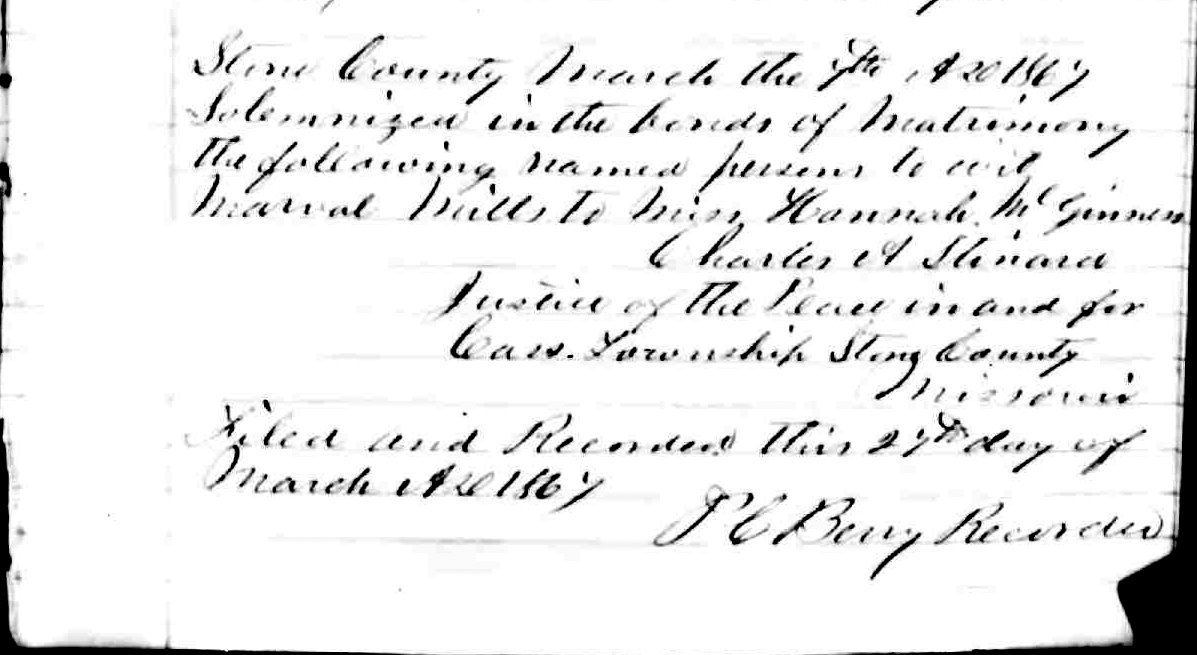 Stone County March the 7th AD 1867
Solemnized in the bonds of Matrimony
the following named persons to wit
Marval Mills to Miss Hannah McGinness
Charles A Stinard
Justice of the Peace in and for
Cass. Township Stone County
Missouri
Filed and Recorded this 27th day of
March AD 1867
P C Berry Recorder